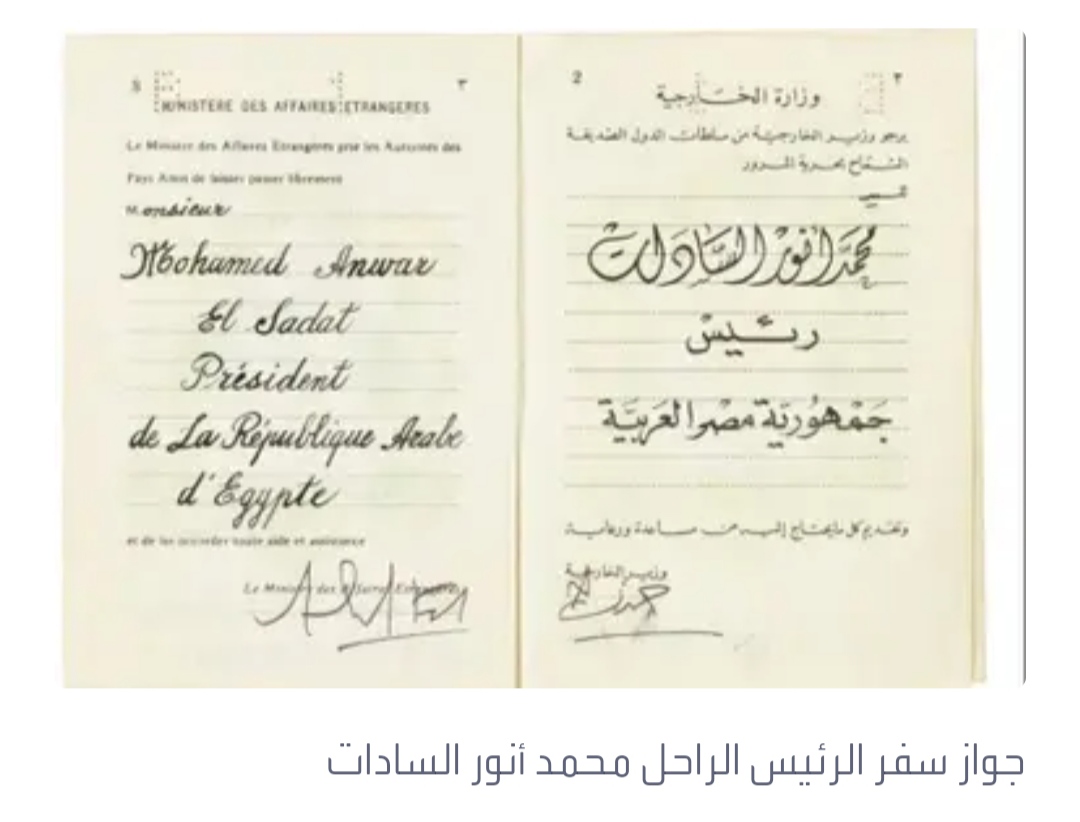 3 ٣
MINISTERE DES AFFAIRES ETRANGERES
Le Ministre des Affaires Etrangères prie les Autorités des
Pays Amis de laisser passer librement
Monsieur
Mohamed Anwar
El Sadat
Président
de La République Arabe
d'Egypte
et de lui accorder toute aide et assistance
Le Ministre des Affaires Etrangères
2 ٢
وزارة الخارجية
يرجو وزير الخارجية من سلطات الدول الصديقة
السماح بحرية المرور
للسيد
محمد أنور السادات
رئيس
جمهورية مصر العربية
وتقديم كل ما يحتاج إليه من مساعدة ورعاية
وزير الخارجية
جواز سفر الرئيس الراحل محمد أنور السادات